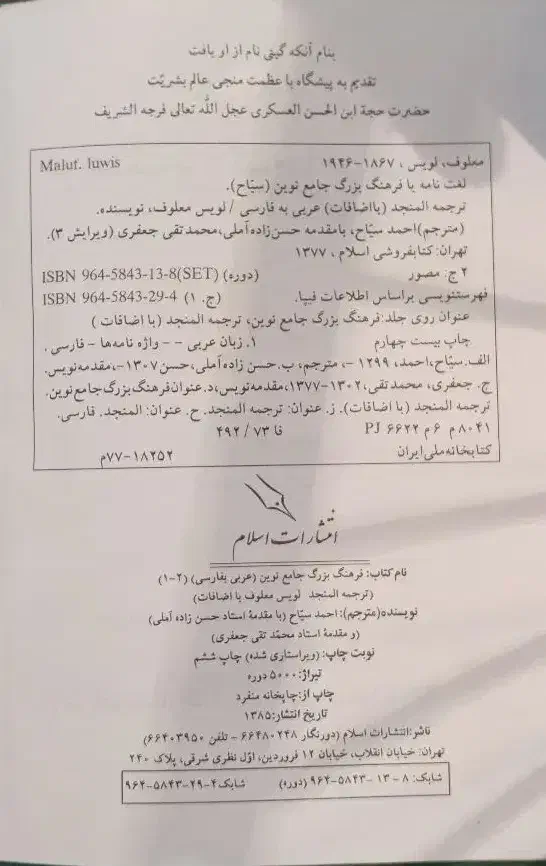 بنام آنکه گیتی نام از او یافت
تقدیم به پیشگاه با عظمت منجی عالم بشریّت
حضرت حجة ابن الحسن العسکری عجل الله تعالی فرجه الشریف
معلوف، لویس، ۱۸۶۷-۱۹۴۶ Maluf. luwis
لغت نامه یا فرهنگ بزرگ جامع نوین (سیّاح).
ترجمه المنجد (بااضافات) عربی به فارسی / لویس معلوف، نویسنده.
(مترجم) احمد سیّاح، بامقدمه حسن‌زاده‌آملی، محمدتقی جعفری (ویرایش ۳).
تهران: کتابفروشی اسلام، ۱۳۷۷
۲ ج: مصور (دوره) ISBN 964-5843-13-8(SET)
فهرستنویسی براساس اطلاعات فیپا. (ج. ۱) ISBN 964-5843-29-4
عنوان روی جلد: فرهنگ بزرگ جامع نوین، ترجمه المنجد (با اضافات )
چاپ بیست چهارم ۱. زبان عربی - - واژه نامه‌ها - فارسی .
الف. سیّاح، احمد، ۱۲۹۹ -، مترجم، ب. حسن زاده‌آملی، حسن ۱۳۰۷-، مقدمه‌نویس.
ج. جعفری، محمدتقی، ۱۳۰۲-۱۳۷۷، مقدمه‌نویس، د. عنوان فرهنگ بزرگ جامع نوین.
ترجمه المنجد (با اضافات). ز. عنوان: ترجمه المنجد. ح. عنوان: المنجد. فارسی.
۸۰۴۱ م ۶ م ۶۶۲۲ PJ فا ۷۳ / ۴۹۲
کتابخانه ملی ایران ۱۸۲۵۲-۷۷م
انتشارات اسلام
نام کتاب: فرهنگ بزرگ جامع نوین (عربی بفارسی) (۲-۱)
(ترجمه المنجد لویس معلوف با اضافات)
نویسنده(مترجم): احمد سیّاح (با مقدمهٔ استاد حسن زاده آملی)
(و مقدمهٔ استاد محمّد تقی جعفری)
نوبت چاپ: (ویراستاری شده) چاپ ششم
تیراژ: ۵۰۰۰ دوره
چاپ از: چاپخانه منفرد
تاریخ انتشار: ۱۳۸۵
ناشر: انتشارات اسلام (دورنگار ۶۶۴۸۰۲۴۸ - تلفن ۶۶۴۰۳۹۵۰)
تهران: خیابان انقلاب، خیابان ۱۲ فروردین، اوّل نظری شرقی، پلاک ۲۴۰
شابک: ۸ - ۱۳ - ۵۸۴۳-۹۶۴ (دوره) شابک ۴-۲۹-۵۸۴۳-۹۶۴